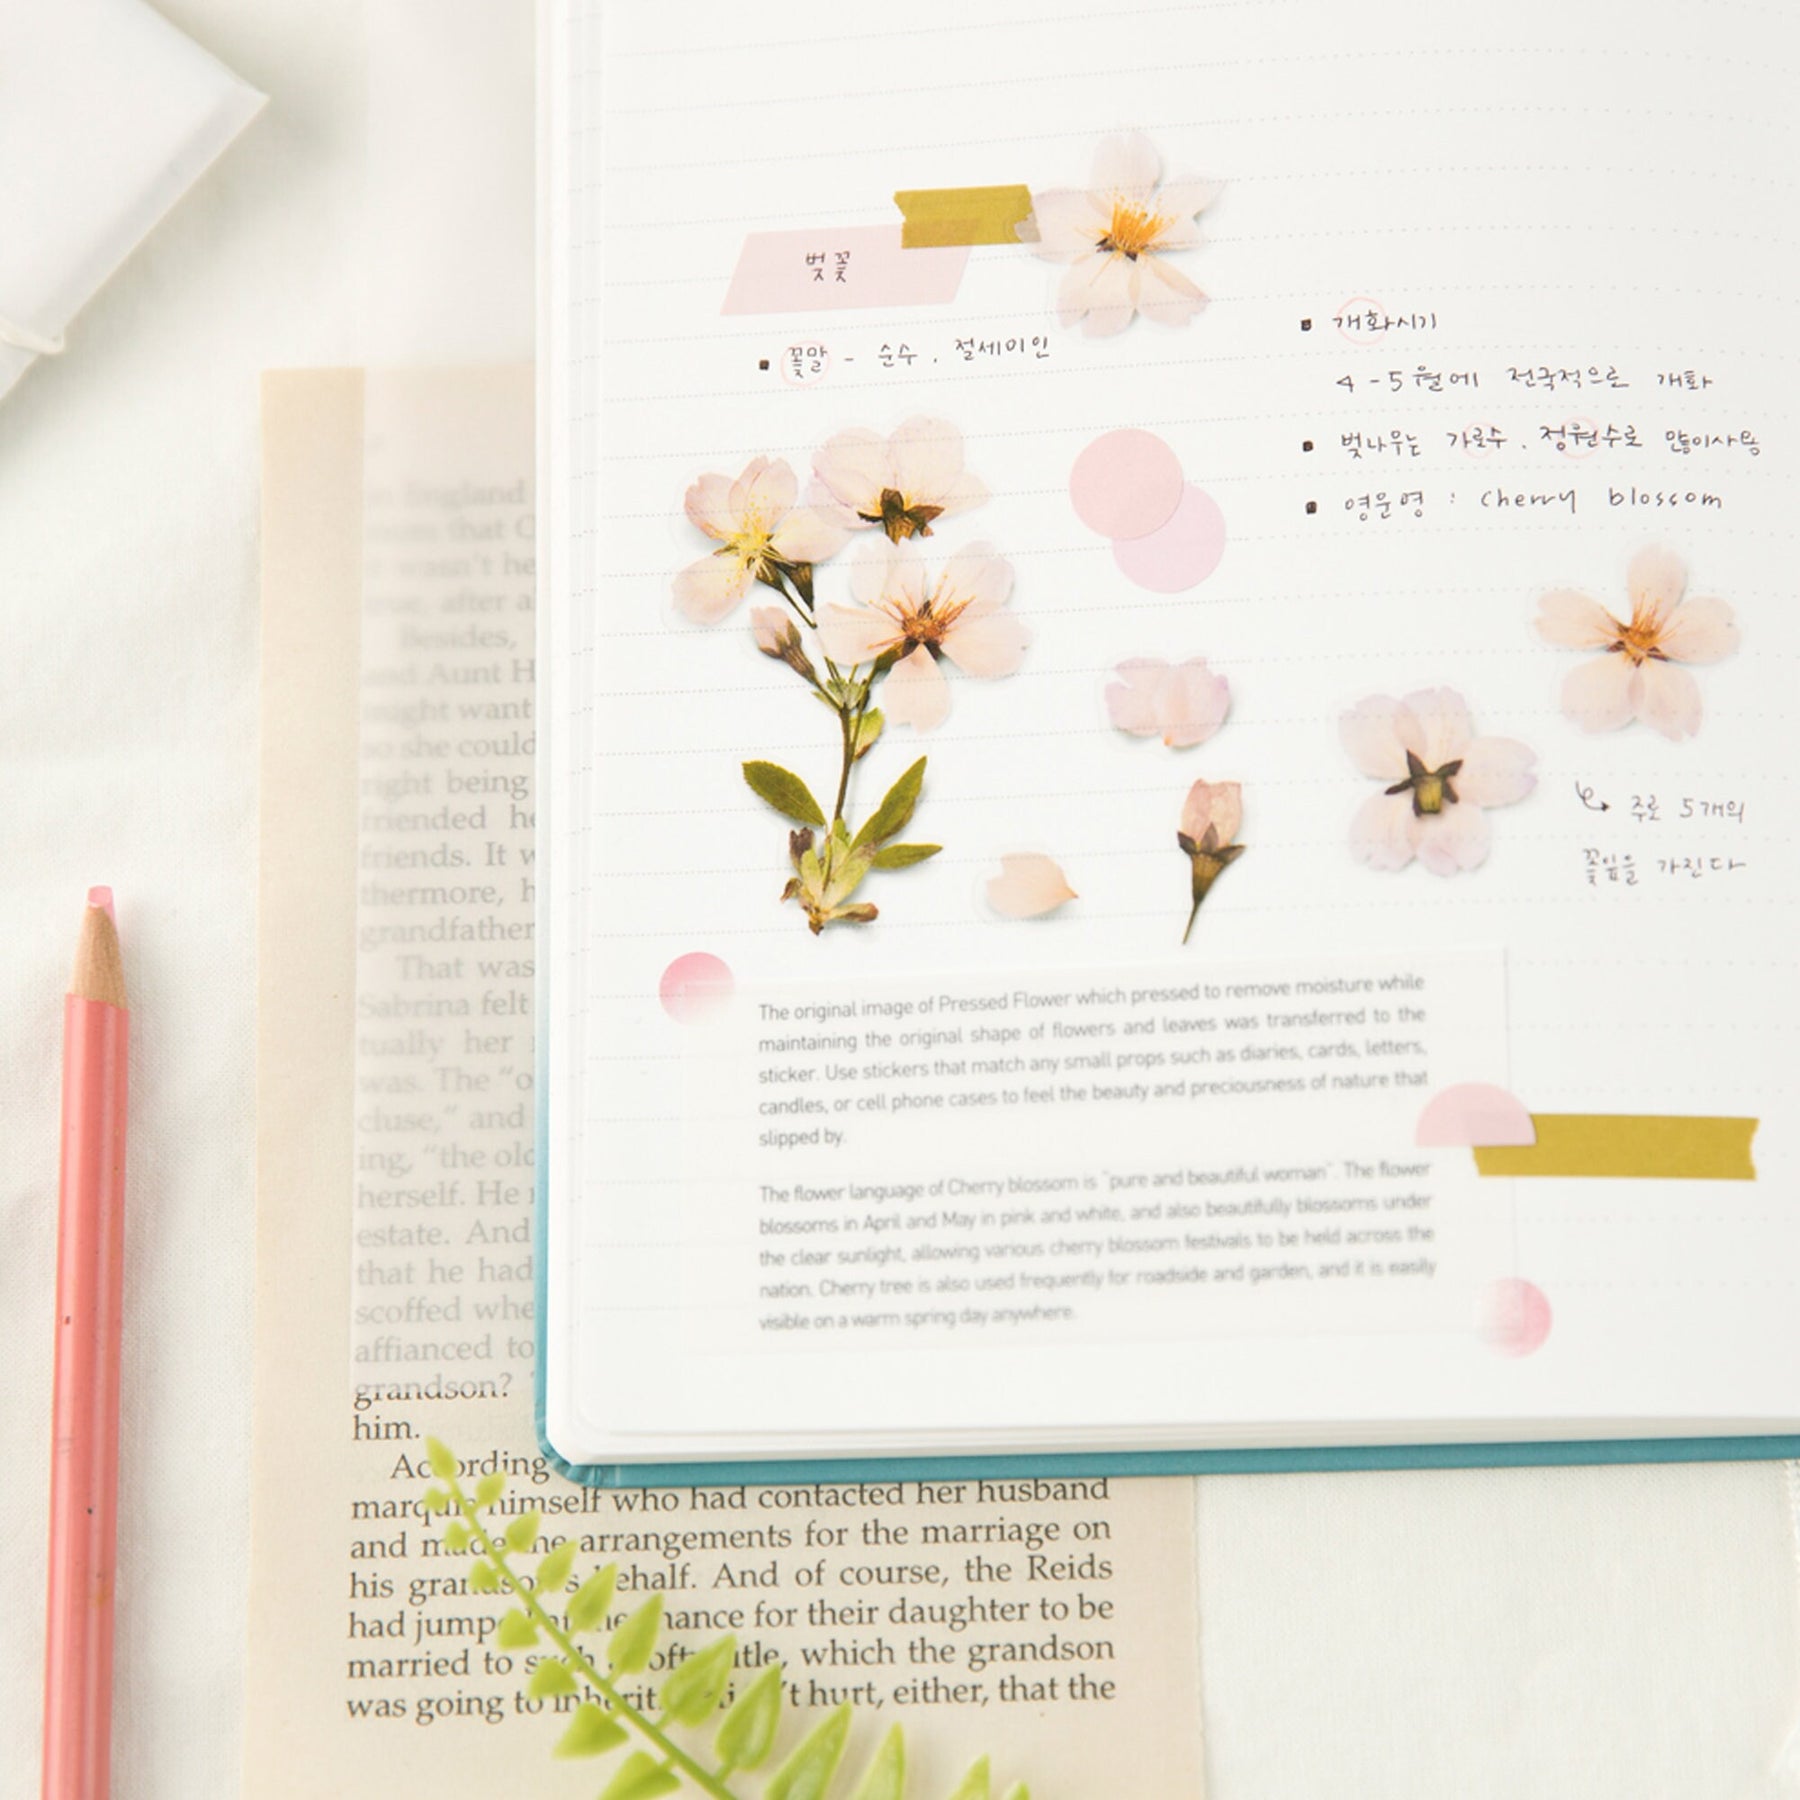 벚꽃
꽃말 - 순수 . 절세미인
개화시기
4 - 5월에 전국적으로 개화
벚나무는 가로수 . 정원수로 많이사용
영문명 : cherry blossom
주로 5개의
꽃잎을 가진다
The original image of Pressed Flower which pressed to remove moisture while
maintaining the original shape of flowers and leaves was transferred to the
sticker. Use stickers that match any small props such as diaries, cards, letters,
candles, or cell phone cases to feel the beauty and preciousness of nature that
slipped by.
The flower language of Cherry blossom is "pure and beautiful woman". The flower
blossoms in April and May in pink and white, and also beautifully blossoms under
the clear sunlight, allowing various cherry blossom festivals to be held across the
nation. Cherry tree is also used frequently for roadside and garden, and it is easily
visible on a warm spring day anywhere.
in England
that
wasn't he
true, after a
Besides,
and Aunt H
might want
so she could
right being
friended he
friends. It w
thermore, h
grandfather
That was
Sabrina felt
tually her
was. The "o
cluse," and
ing, "the old
herself. He
estate. And
that he had
scoffed whe
affianced to
grandson?
him.
According
himself who had contacted her husband
and made arrangements for the marriage on
his behalf. And of course, the Reids
had for their daughter to be
married to which the grandson
was going to hurt, either, that the